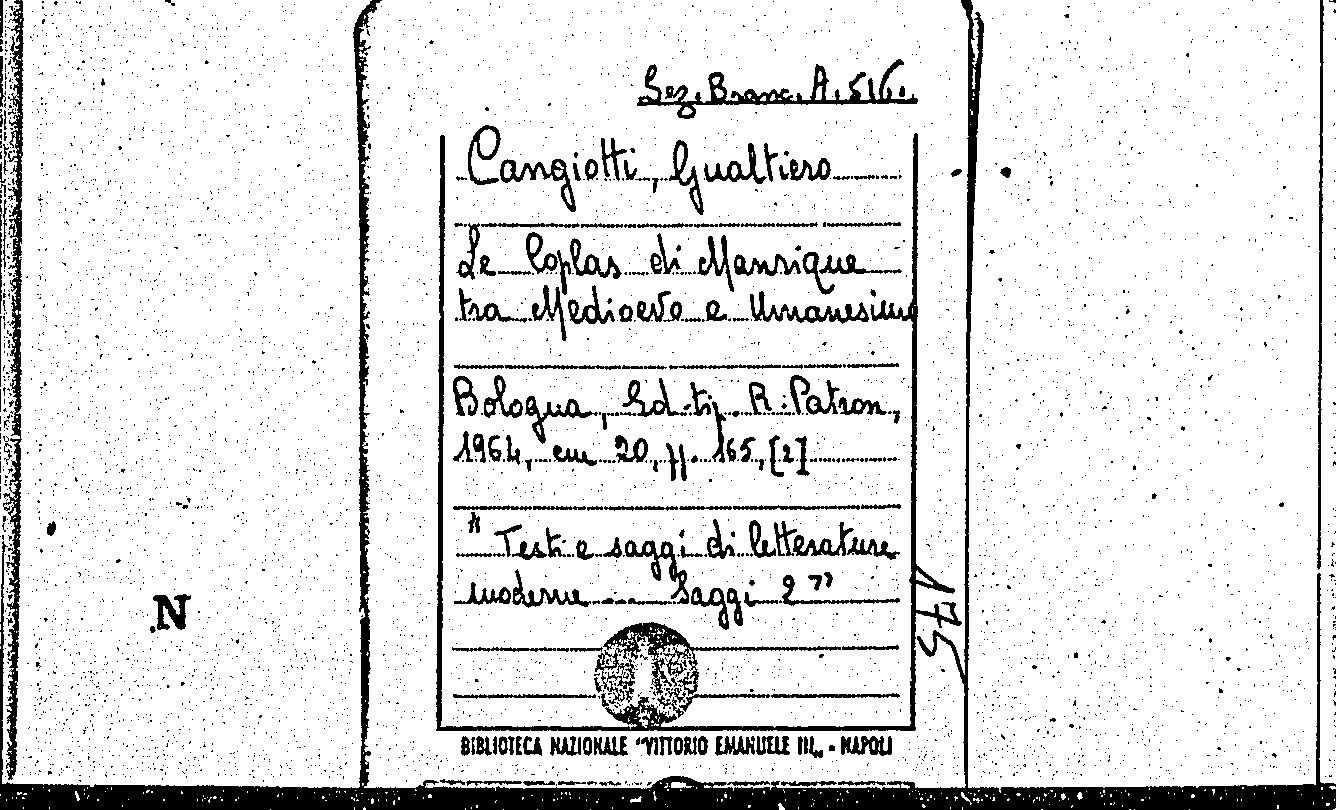 Sez. Branc. A. 516.
Cangiotti, Gualtiero
Le Coplas di Manrique
tra Medioevo e Umanesimo
Bologna, Ed. tip. R. Patron,
1964, cm 20, pp. 165, [2]
"Testi e saggi di letterature
moderne... Saggi 2"
175
N
BIBLIOTECA NAZIONALE "VITTORIO EMANUELE III„ - NAPOLI